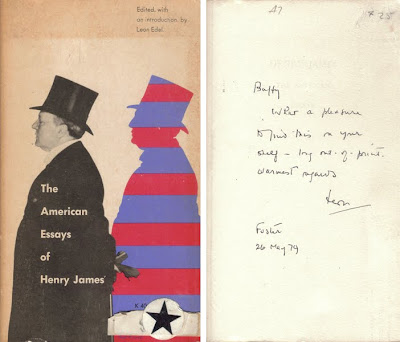 Edited, with
an introduction by
Leon Edel.
The
American
Essays
of
Henry James
K 40
47
25
Buffy
What a pleasure
to find this on your
shelf – long out-of-print.
Warmest regards
Leon
Foster
26 May 79